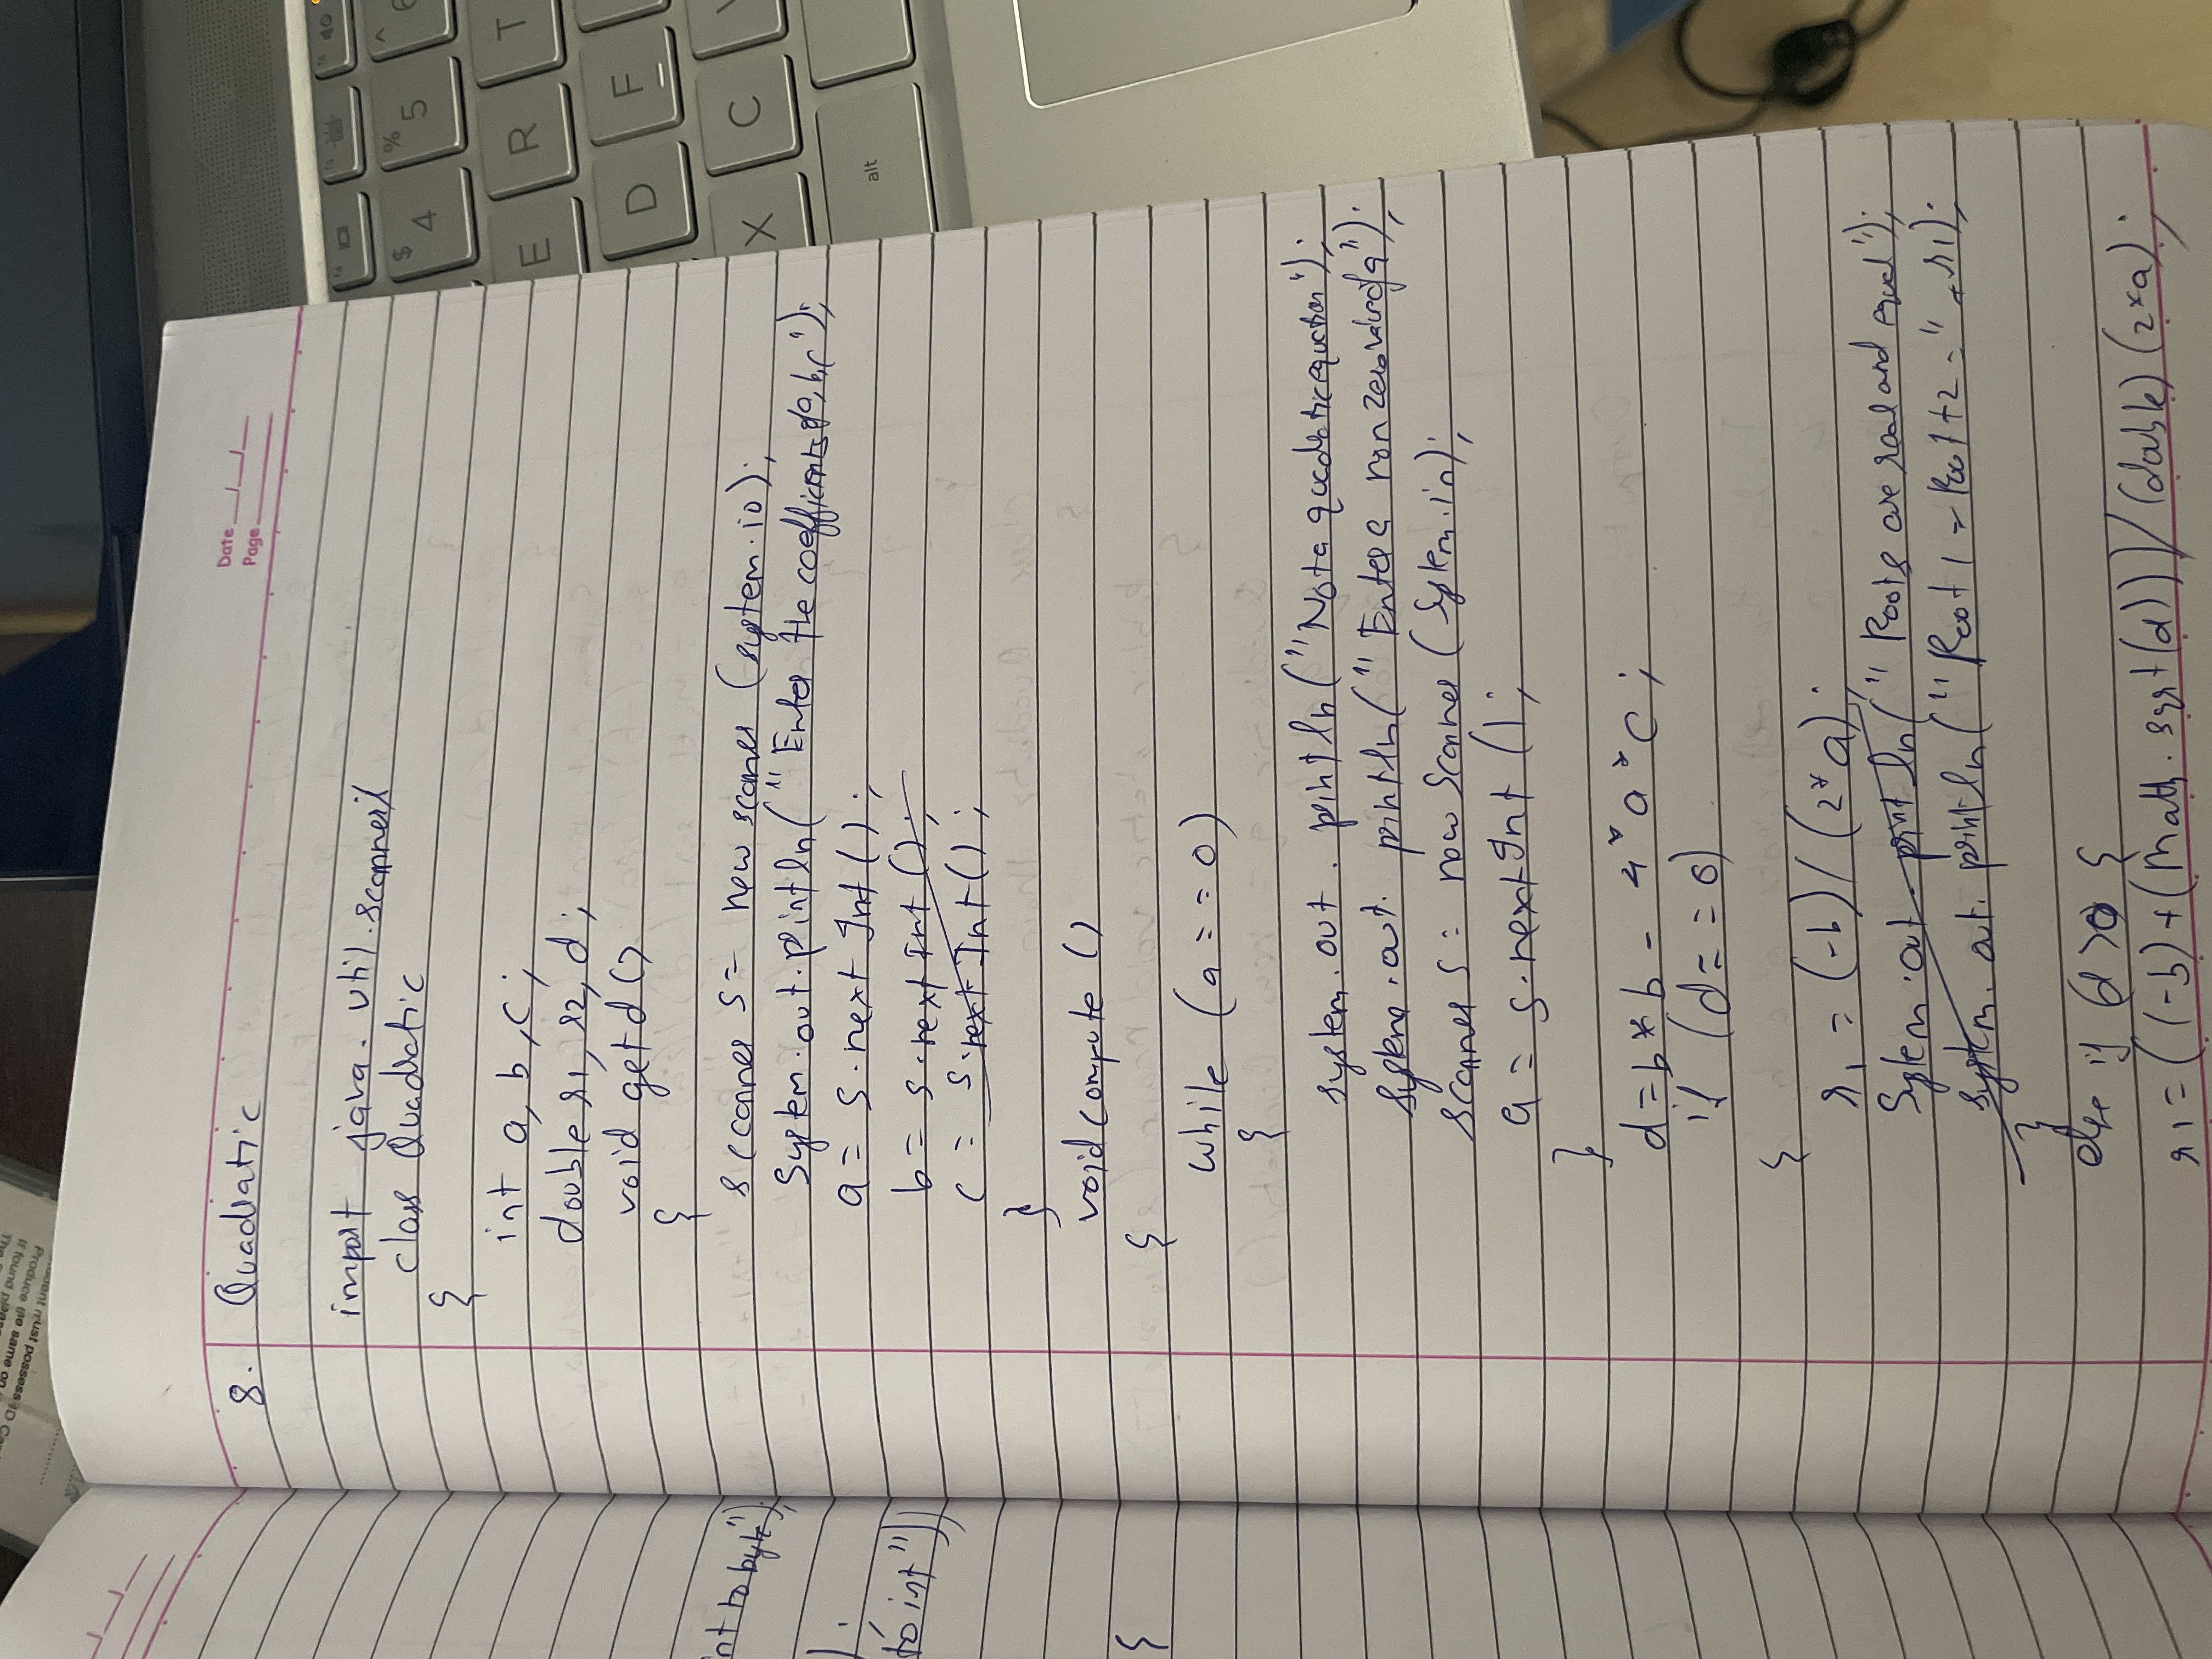 udent must possess ID Ca
Produce the same on
If found pleas
8. Quadratic
Date
Page
import java.util.scanner;
class Quadratic
{
int a, b, c;
double r1, r2, d;
void getd()
{
scanner s = new scanner (system.io);
System.out.println("Enter the coefficients of a,b,c");
a = s.nextInt();
b = s.nextInt();
c = s.nextInt();
}
void compute ()
{
while (a == 0)
{
system.out.println("Not a quadratic equation");
System.out.println("Enter a non zero value of a");
scanner s = new Scanner (System.in);
a = s.nextInt();
}
d = b*b - 4*a*c;
if (d == 0)
{
r1 = (-b)/(2*a);
System.out.println("Roots are real and equal");
system.out.println("Root1 = Root2 = " + r1);
}
else if (d>0 {
r1 = ((-b)+(Math.sqrt(d)))/(double)(2*a);
int to byte");
to int"))
{
$ 4
% 5
^ 6
E
R
T
D
F
X
C
alt